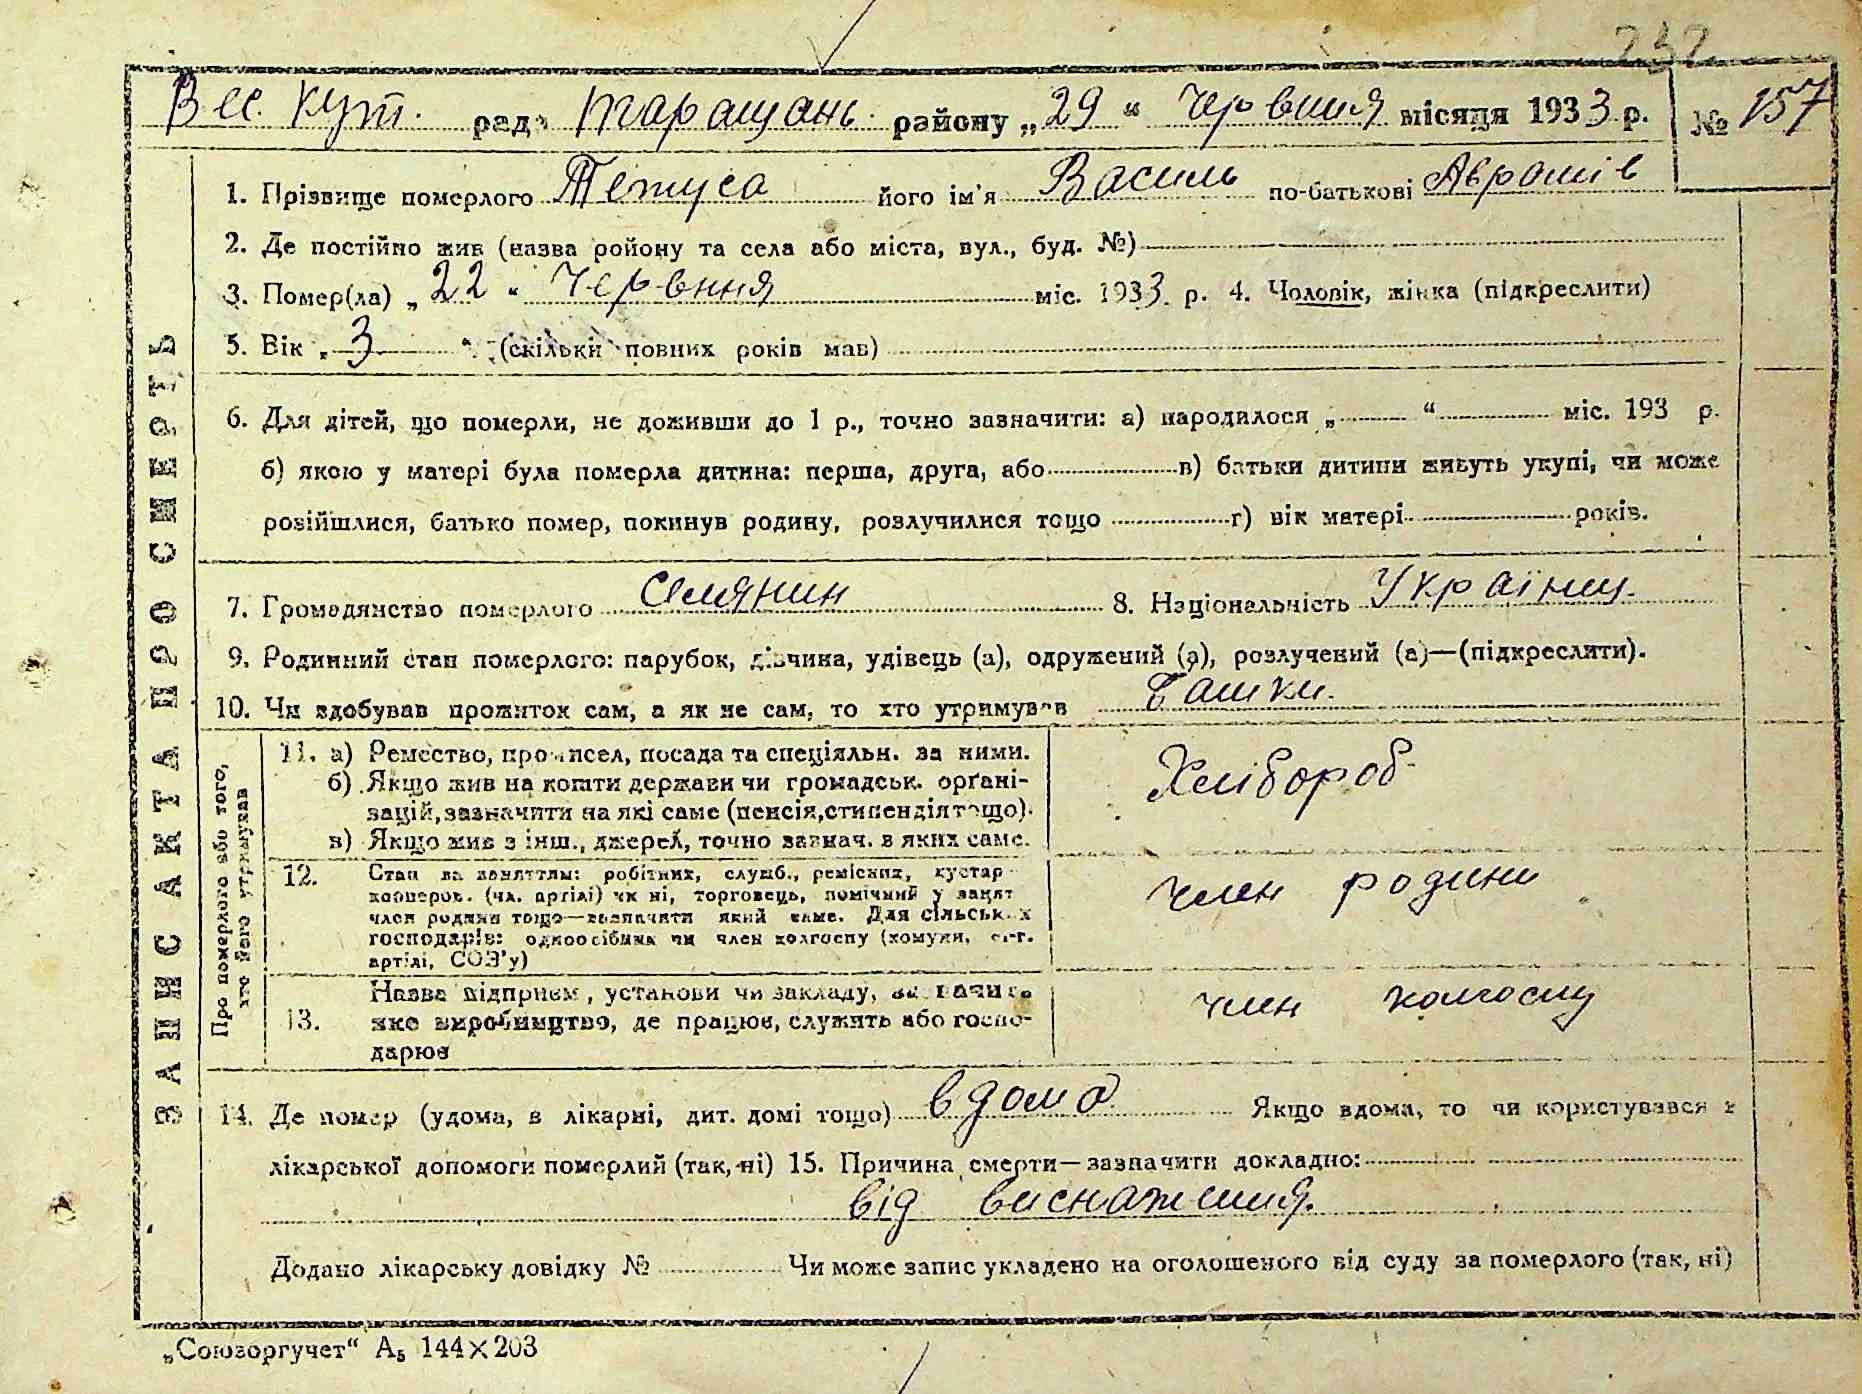 232
Вес. Кут. рад Таращань. району „29“ Червння місяця 1933 р. № 157
ЗАПИС АКТА ПРО СМЕРТЬ
1. Прізвище померлого Тетуса його ім'я Василь по-батькові Аврамів
2. Де постійно жив (назва ройону та села або міста, вул., буд. №)
3. Помер(ла) „22“ Червння міс. 1933 р. 4. Чоловік, жінка (підкреслити)
5. Вік „3“ (скільки повних років мав)
6. Для дітей, що померли, не доживши до 1 р., точно зазначити: а) народилося „ “ міс. 193 р.
б) якою у матері була померла дитина: перша, друга, або в) батьки дитини живуть укупі, чи може
розійшлися, батько помер, покинув родину, розлучилися тощо г) вік матері років.
7. Громадянство померлого селянин 8. Національність Українц.
9. Родинний стан померлого: парубок, дівчина, удівець (а), одружений (а), розлучений (а)—(підкреслити).
10. Чи здобував прожиток сам, а як не сам, то хто утримував Батки.
Про померлого або того, хто його утримував
11. а) Ремество, промисел, посада та спеціяльн. за ними.
б) Якщо жив на кошти держави чи громадськ. органі-
зацій, зазначити на які саме (пенсія, стипендія тощо).
в) Якщо жив з інш., джерел, точно зазнач. в яких саме.
Хлібороб
12. Стан за заняттям: робітник, служб., ремісник, кустар
кооперов. (чл. артілі) чи ні, торговець, помічний у занят
член родини тощо—зазначити який саме. Для сільськ х
господарів: одноосібник чи член колгоспу (комуни, с.-г.
артілі, СОЗ'у)
член родини
13. Назва підприєм, установи чи закладу, зазначить
яке виробництво, де працює, служить або госпо-
дарює
член колгоспу
14. Де помер (удома, в лікарні, дит. домі тощо) вдома Якщо вдома, то чи користувався з
лікарської допомоги померлий (так, ні) 15. Причина смерти—зазначити докладно:
від виснаження.
Додано лікарську довідку № Чи може запис укладено на оголошеного від суду за померлого (так, ні)
„Союзоргучет“ А₅ 144×203